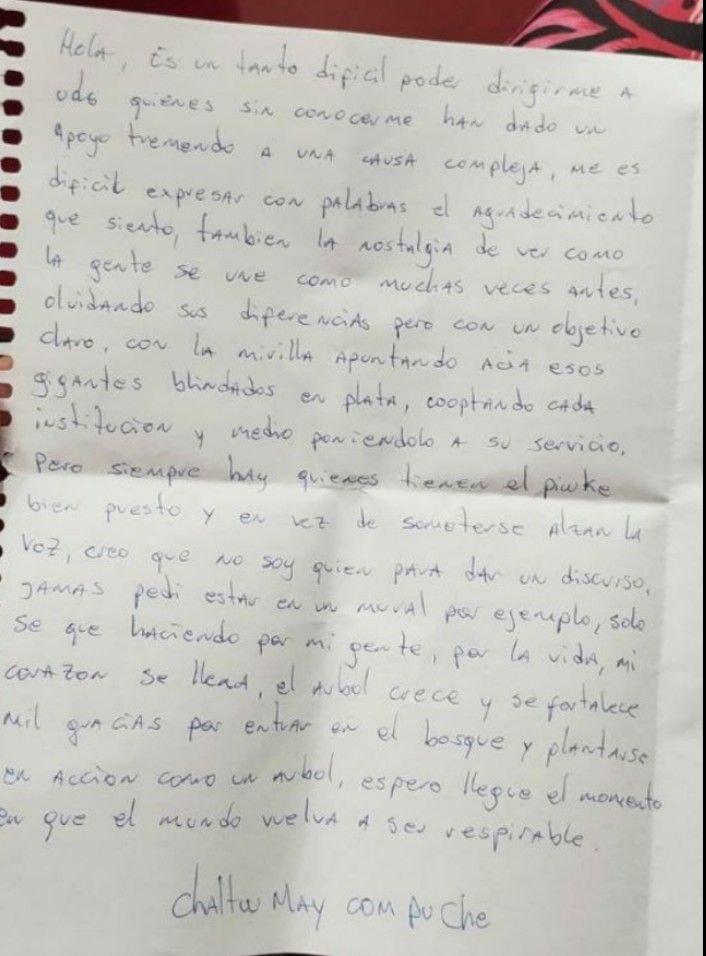 Hola, Es un tanto dificil poder dirigirme A
uds quienes sin conocerme han dado un
Apoyo tremendo A una causa compleja, me es
dificil expresar con palabras el agradecimiento
que siento, tambien la nostalgia de ver como
la gente se une como muchas veces antes,
olvidando sus diferencias pero con un objetivo
claro, con la mirilla apuntando Acia esos
gigantes blindados en plata, cooptando cada
institucion y medio poniendolo A su servicio.
Pero siempre hay quienes tienen el piwke
bien puesto y en vez de someterse Alzan la
voz, creo que no soy quien para dar un discurso,
JAMAS pedi estar en un mural por ejemplo, solo
se que haciendo por mi gente, por la vida, mi
corazon se llena, el arbol crece y se fortalece
mil gracias por entrar en el bosque y plantarse
en Accion como un arbol, espero llegue el momento
en que el mundo vuelva A ser respirable.
Chaltu May compuche